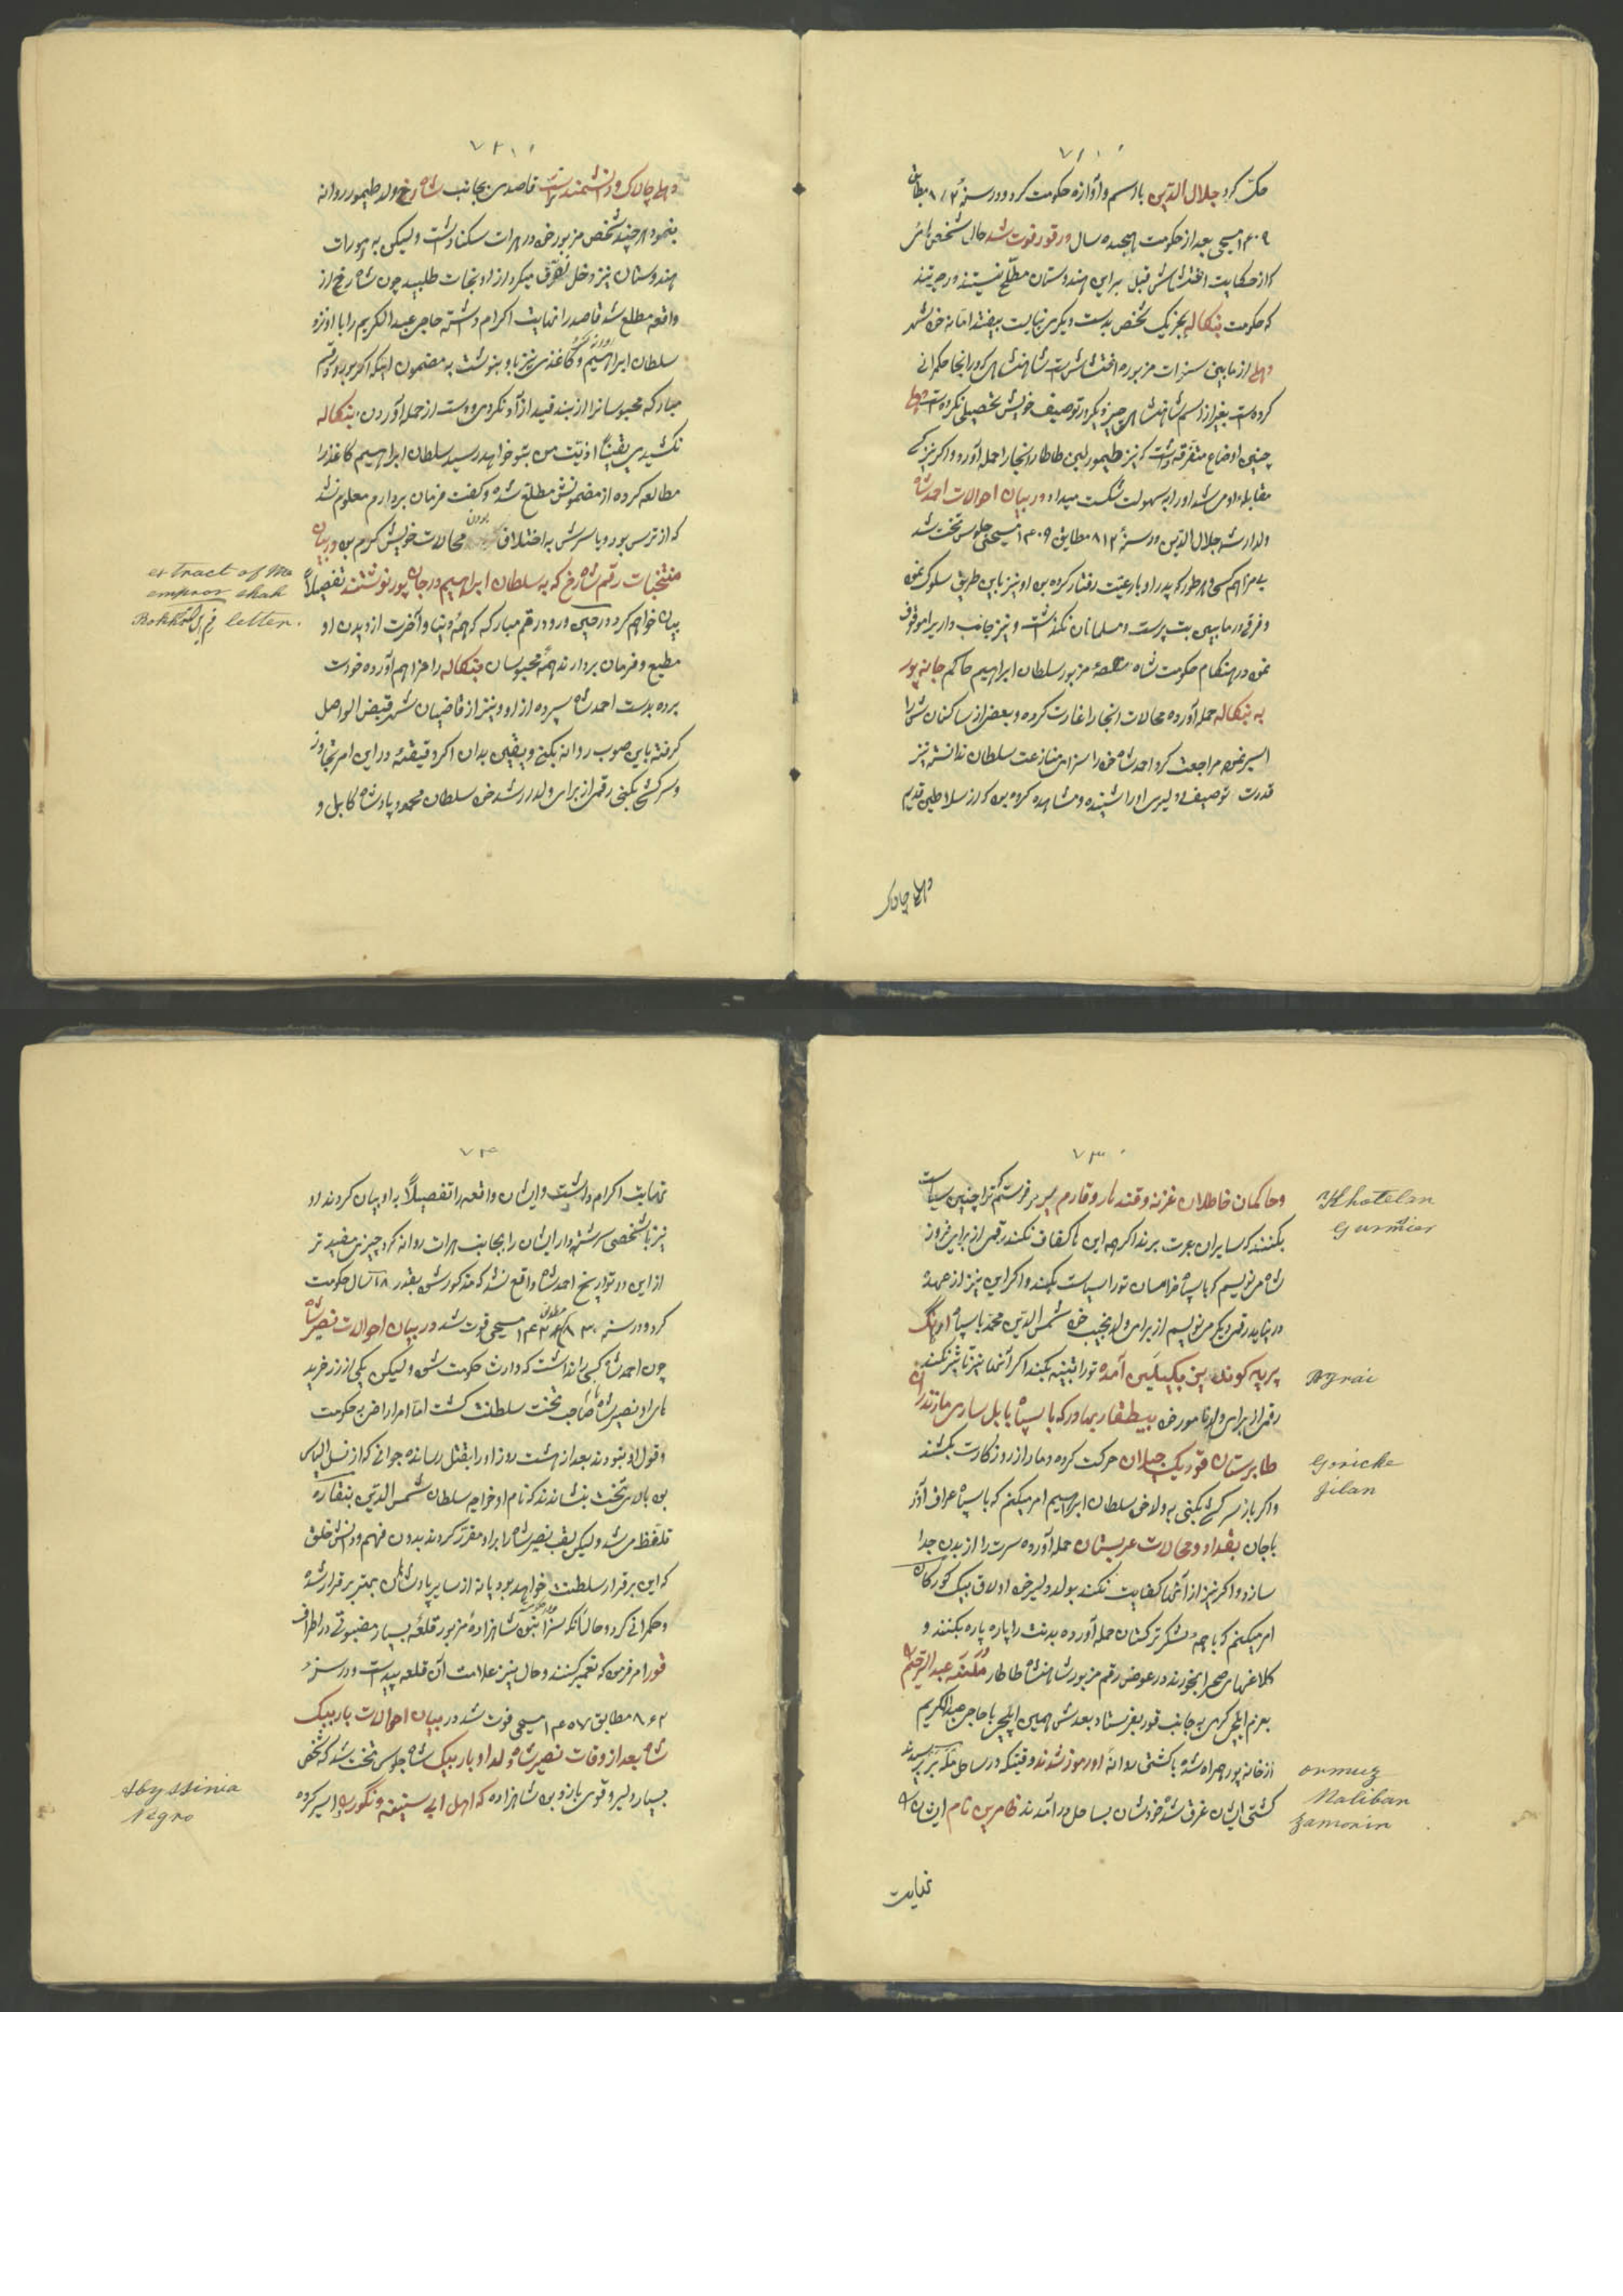 ۷۱
حکّ کرد جلال الدّین با اسم و آوازه حکومت کرد و در سنهٔ ۸۱۲ مطابق
۱۴۰۹ مسیحی بعد از حکومت هیجده سال در قور فوت شد حال شخص
که از حکایت قبل براین هندوستان مطلّع نیستند در حیرتند
که حکومت بنکاله بجز یک شخص بدست دیگری نبایست بیفتد امّا نه خود شهر
دهلی از مابین سنوات مزبوره شاهنشاهی که در انجا حکمرانی
کرده است بغیر از اسم شاهنشاهی چیز دیگر در توصیف خویش تحصیل نکرده است دهلی
چنین اوضاع متفرّقه داشت که نیز طیمور لین طاطار انجا را حمله آورد و اکر نیز کسی
مقابله او می شد او را به سهولت شکست میداد در بیان احوالات احمد شاه
ولد ارشد جلال الدّین در سنهٔ ۸۱۲ مطابق ۱۴۰۹ مسیحی جلوس تخت شد
بی مزاهم کسی و هر طور که پدر او با رعیّت رفتار کرده بود او نیز باین طریق سلوک نمود
و فرقی در مابین بت پرست و مسلمانان نکذاشت و نیز جانب داری را موقوف
نمود در هنکام حکومت شاه مزبور سلطان ابراهیم حاکم جانپور
به بنکاله حمله آورده محالات انجا را غارت کرده و بعضی از ساکنان شهر را
اسیر نموده مراجعت کرد احمد شاه خود را سزای منازعت سلطان ندانسته نیز
قدرت توصیف دلیری او را شنیده و مشاهده کرده بود که از سلاطین قدیم
دهلی چالاک
۷۲
دهلی چالاک و دانشمند تر است قاصدی بجانب شاه رخ ولد طیمور روانه
بنمود هر چند شخص مزبور خود در هرات سکنا داشت ولیکن به امورات
هندوستان نیز دخل تصرّف میکرد از او نجات طلبید چون شاه رخ از
واقعه مطلع شد قاصد را نهایت اکرام داشته حاجی عبد الکریم را با او نزد
سلطان ابراهیم روانه کرد و کاغذی نیز باو بنوشت به مضمون اینکه اکر بورود رقم
مبارکه محبوسان را از بند قید آزاد نکردی و دست از حمله آوردن بنکاله
نکشیدی یقیناً اذیّت من بتو خواهد رسید سلطان ابراهیم کاغذ را
مطالعه کرده از مضمونش مطلع شده و کفت فرمان بردارم معلوم شد
که از ترس بود و یا سرش به اختلاف بودن محالات خویش کرم بود در بیان
منتخبات رقم شاه رخ که به سلطان ابراهیم در جان پور نوشتند تفصیلاً
extract of the
emperor shah
Rokh's شاه رخ letter.
بیان خواهم کرد در حین ورود رقم مبارکه که همه دنیا و آخرت از دیدن او
مطیع و فرمان بردارند همه محبوسان بنکاله را مزاهم آورده خودت
برده بدست احمد شاه سپرده از او و نیز از قاضیان شهر قبض الواصل
کرفته باین صوب روانه بکن و یقین بدان اکر دقیقهٔ در این امر تجاوز
و سرکشی بکنی رقمی از برای ولد رشد خود سلطان محمد پادشاه کابل و
۷۳
و حاکمان خاطلان غزنه و قندهار و قارم سیر میفرستم که ترا چنین سیاست
Khatelan
Gurmier
بکنند که سایران عبرت برند اکر چه این ها کفاف نکند رقمی از برای فیروز
شاه می نویسم که با سپاه خراسان تو را سیاست بکند و اکر این نیز از عهده
در نیاید رقمی دیکر می نویسم از برای ولد نجیب خود شمس الدّین محمّد با سپاه اورنگ
بر پیه کوند بن بیکیلین آمده تو را تنبیه بکند اکر آنها نیز تأثیر نکنند
Bgrai
رقمی از برای ولد نامور خود بیطنقار بهادر که با سپاه بابل ساری مازندران
طابرستان قوریک جیلان حرکت کرده دمار از روزگارت بکشند
Goricke
Jilan
و اکر باز سرکشی بکنی به ولد خود سلطان ابراهیم امر میکنم که با سپاه عراق آذر
باجان بغداد و محالات عربستان حمله آورده سرت را از بدن جدا
سازد و اکر نیز از آنها کفایت نکند بولد دلیر خود اولاق بیک کورکان
امر میکنم که با همه لشکر ترکستان حمله آورده بدنت را پاره پاره بکنند و
کلاغهای صحرا بخورند در عوض رقم مزبور شاهنشاه طاطار عبد الرحیم
بعزم ایلچی کری به جانب قور بفرستاد بعد شهمین ایلچی با حاجی عبد الکریم
از خانه پور همراه شده با کشتی روانه اورموز شدند وقتیکه در ساحل ملیبر رسیدند
ormuz
Maliban
کشتی ایشان غرق شده خودشان بساحل در آمدند ظامرین نام ایشان را
Zamorin
نهایت
۷۴
نهایت اکرام داشت و ایشان واقعه را تفصیلاً به او بیان کردند او
نیز با شخصی سررشته دار ایشان را بجانب هرات روانه کرد چیزی مفید تر
از این در تواریخ احمد شاه واقع نشد که مذکور شود بقدر ۱۸ سال حکومت
کرد و در سنه ۸۳۰ مطابق ۱۴۲۶ مسیحی فوت شد در بیان احوالات نصیر شاه
چون احمد شاه کسی را نداشت که وارث حکومت شود ولیکن یکی از زر خرید
های او نصیر شاه نام صاحب تخت سلطنت کشت امّا امرا راضی به حکومت
و قول او نبودند بعد از هشت روز او را بقتل رسانده جوانی که از نسل الیاس
بود بالای تخت بنشاندند که نام او خواجه سلطان شمس الدّین بنقاره
تلفّظ می شد ولیکن لقب نصیر شاه را برای او مقرّر کردند بدون فهم و دانش خلق
که این برقرار سلطنت خواهد بود یا نه از سایر پادشاهان بهتر برقرار شده
و حکمرانی کرد و حال آنکه سزا نبود شاهزاده مزبور قلعهٔ بسیار مضبوطی در اطراف
قور امر فرمود که تعمیر کنند و حال نیز علامت آن قلعه پیداست و در سنهٔ
۸۶۲ مطابق ۱۴۵۷ مسیحی فوت شد در بیان احوالات باربیک
شاه بعد از وفات نصیر شاه ولد او باربیک شاه جلوس تخت شد که شخص
بسیار دلیر و قوی بازو بود شاهزاده که اهل ابی سینیه و نگورها اسیر کرده
Abyssinia
Negro